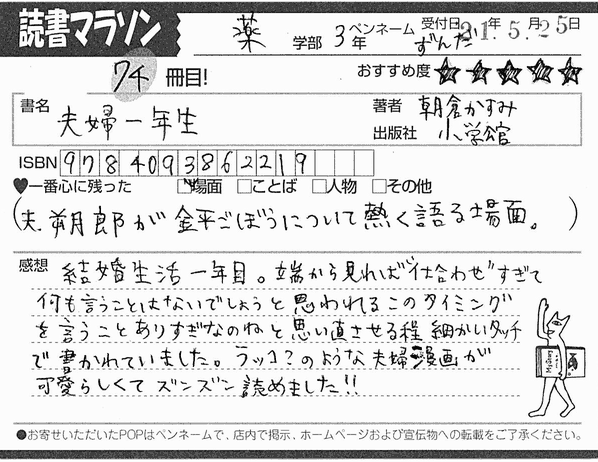 読書マラソン
薬 学部 3年 ペンネーム ずんだ 受付日 21年5月25日
74冊目! おすすめ度 ★★★★★
書名 夫婦一年生
著者 朝倉かすみ
出版社 小学館
ISBN 9784093862219
♥一番心に残った □場面 □ことば □人物 □その他
(夫、朔郎が金平ごぼうについて熱く語る場面。)
感想 結婚生活一年目。端から見れば"仕合わせ"すぎて
何も言うことはないでしょうと思われるこのタイミング
を言うことありすぎなのねと思い直させる程細かいタッチ
で書かれていました。ラッコ?のような夫婦漫画が
可愛らしくてズンズン読めました!!
●お寄せいただいたPOPはペンネームで、店内で掲示、ホームページおよび宣伝物への転載をご了承ください。